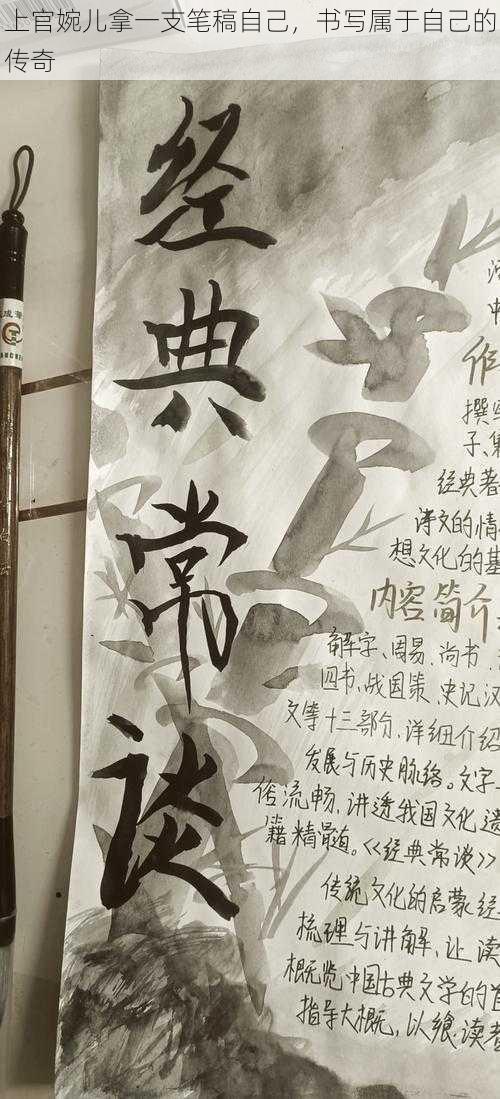 上官婉儿拿一支笔稿自己，书写属于自己的
传奇
经典常谈
作
撰写
经典著
诗文的情
想文化的基
内容简介:
解字、周易、尚书、
四书、战国策、史记汉
文等十三部分，详细介绍
发展与历史脉络。文字
俗流畅，讲透我国文化遗
籍精髓。《经典常谈》
传统文化的启蒙经
梳理与讲解，让读
概览中国古典文学的
指导大概，以飨读者